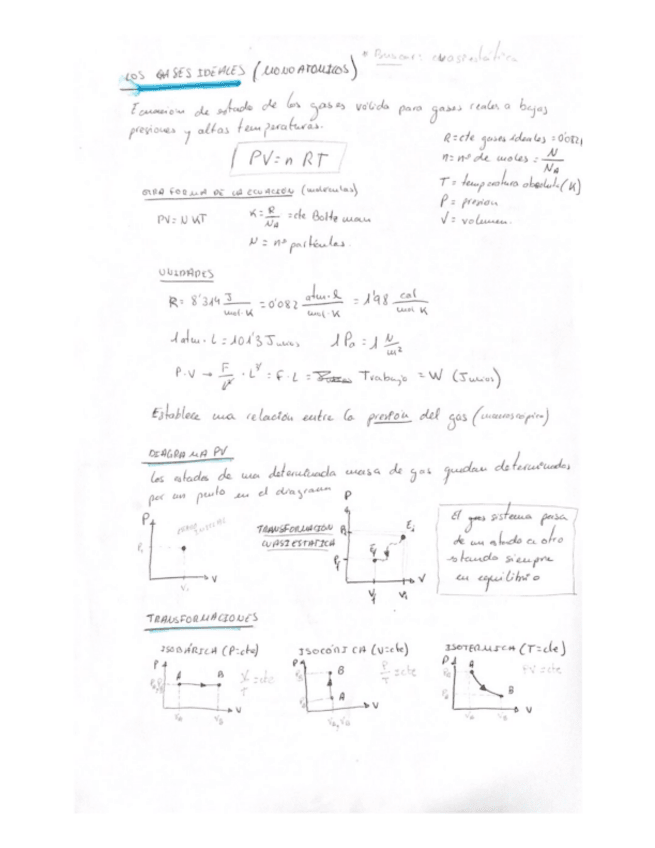 * Buscar: cuasiestática
LOS GASES IDEALES (MONOATOMICOS)
Ecuación de estado de los gases válida para gases reales a bajas
presiones y altas temperaturas.
PV = n RT
R = cte gases ideales = 0'082
n = nº de moles = N/NA
T = temperatura absoluta (K)
P = presion
V = volumen.
OTRA FORMA DE LA ECUACIÓN (moléculas)
PV = N KT
K = R/NA = cte Boltzman
N = nº partículas.
UNIDADES
R = 8'314 J/mol·K = 0'082 atm·l/mol·K = 1'98 cal/mol K
1 atm·L = 101'3 Junios
1 Pa = 1 N/m²
P·V → F/L² · L³ = F·L = Trabajo = W (Junios)
Establece una relación entre la presion del gas (macroscópico)
DIAGRAMA PV
Los estados de una determinada masa de gas quedan determinados
por un punto en el diagrama
P
V
TRANSFORMACIÓN
CUASIESTATICA
P
Pf
Ef
Ei
Vf
Vi
V
El gas sistema pasa
de un estado a otro
estando siempre
en equilibrio
TRANSFORMACIONES
ISOBÁRICA (P=cte)
P
A
B
VA
VB
V
V/T = cte
ISOCÓRICA (V=cte)
P
B
A
VA, VB
V
P/T = cte
ISOTERMICA (T=cte)
P
A
B
VA
VB
V
PV = cte